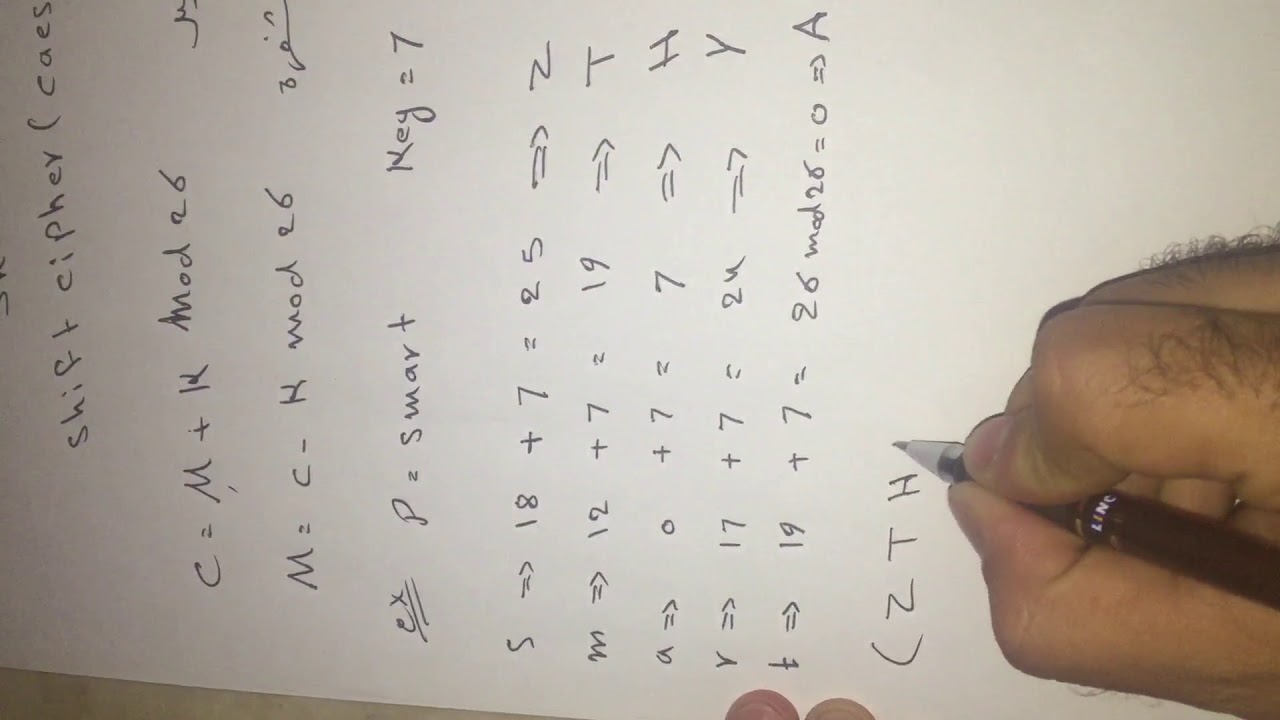 Shift cipher ( caes
C = M + K mod 26
M = C - K mod 26
ex P = smart Key = 7
s => 18 + 7 = 25 => Z
m => 12 + 7 = 19 => T
a => 0 + 7 = 7 => H
r => 17 + 7 = 24 => Y
t => 19 + 7 = 26 mod 26 = 0 => A
( Z T H
LINC